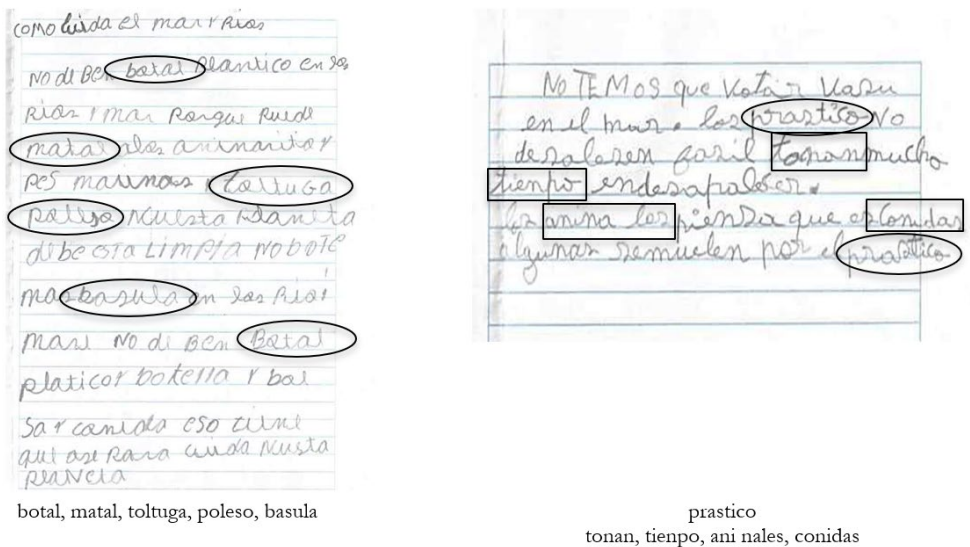 como cuida el mar y Rios
NO di Ben botal Plantico en los
Rios y mar Porque Puede
matal a los animanitos y
pes marinos y toltuga
poleso Nuesta planeta
dibe esta LimPia No boTe
mas basula en los Rios y
mare No di Ben Botal
platicos botella y bol
sa y comida eso tiene
que ase Para cuida Nuesta
planeta
botal, matal, toltuga, poleso, basula
No TEMOS que Votar Vasu
en el mar. los prastico No
desalesen fasil tonan mucho
tienpo en desapaleser.
los anina les piensa que es Conidas
algunas se muelen por el prastico
prastico
tonan, tienpo, ani nales, conidas